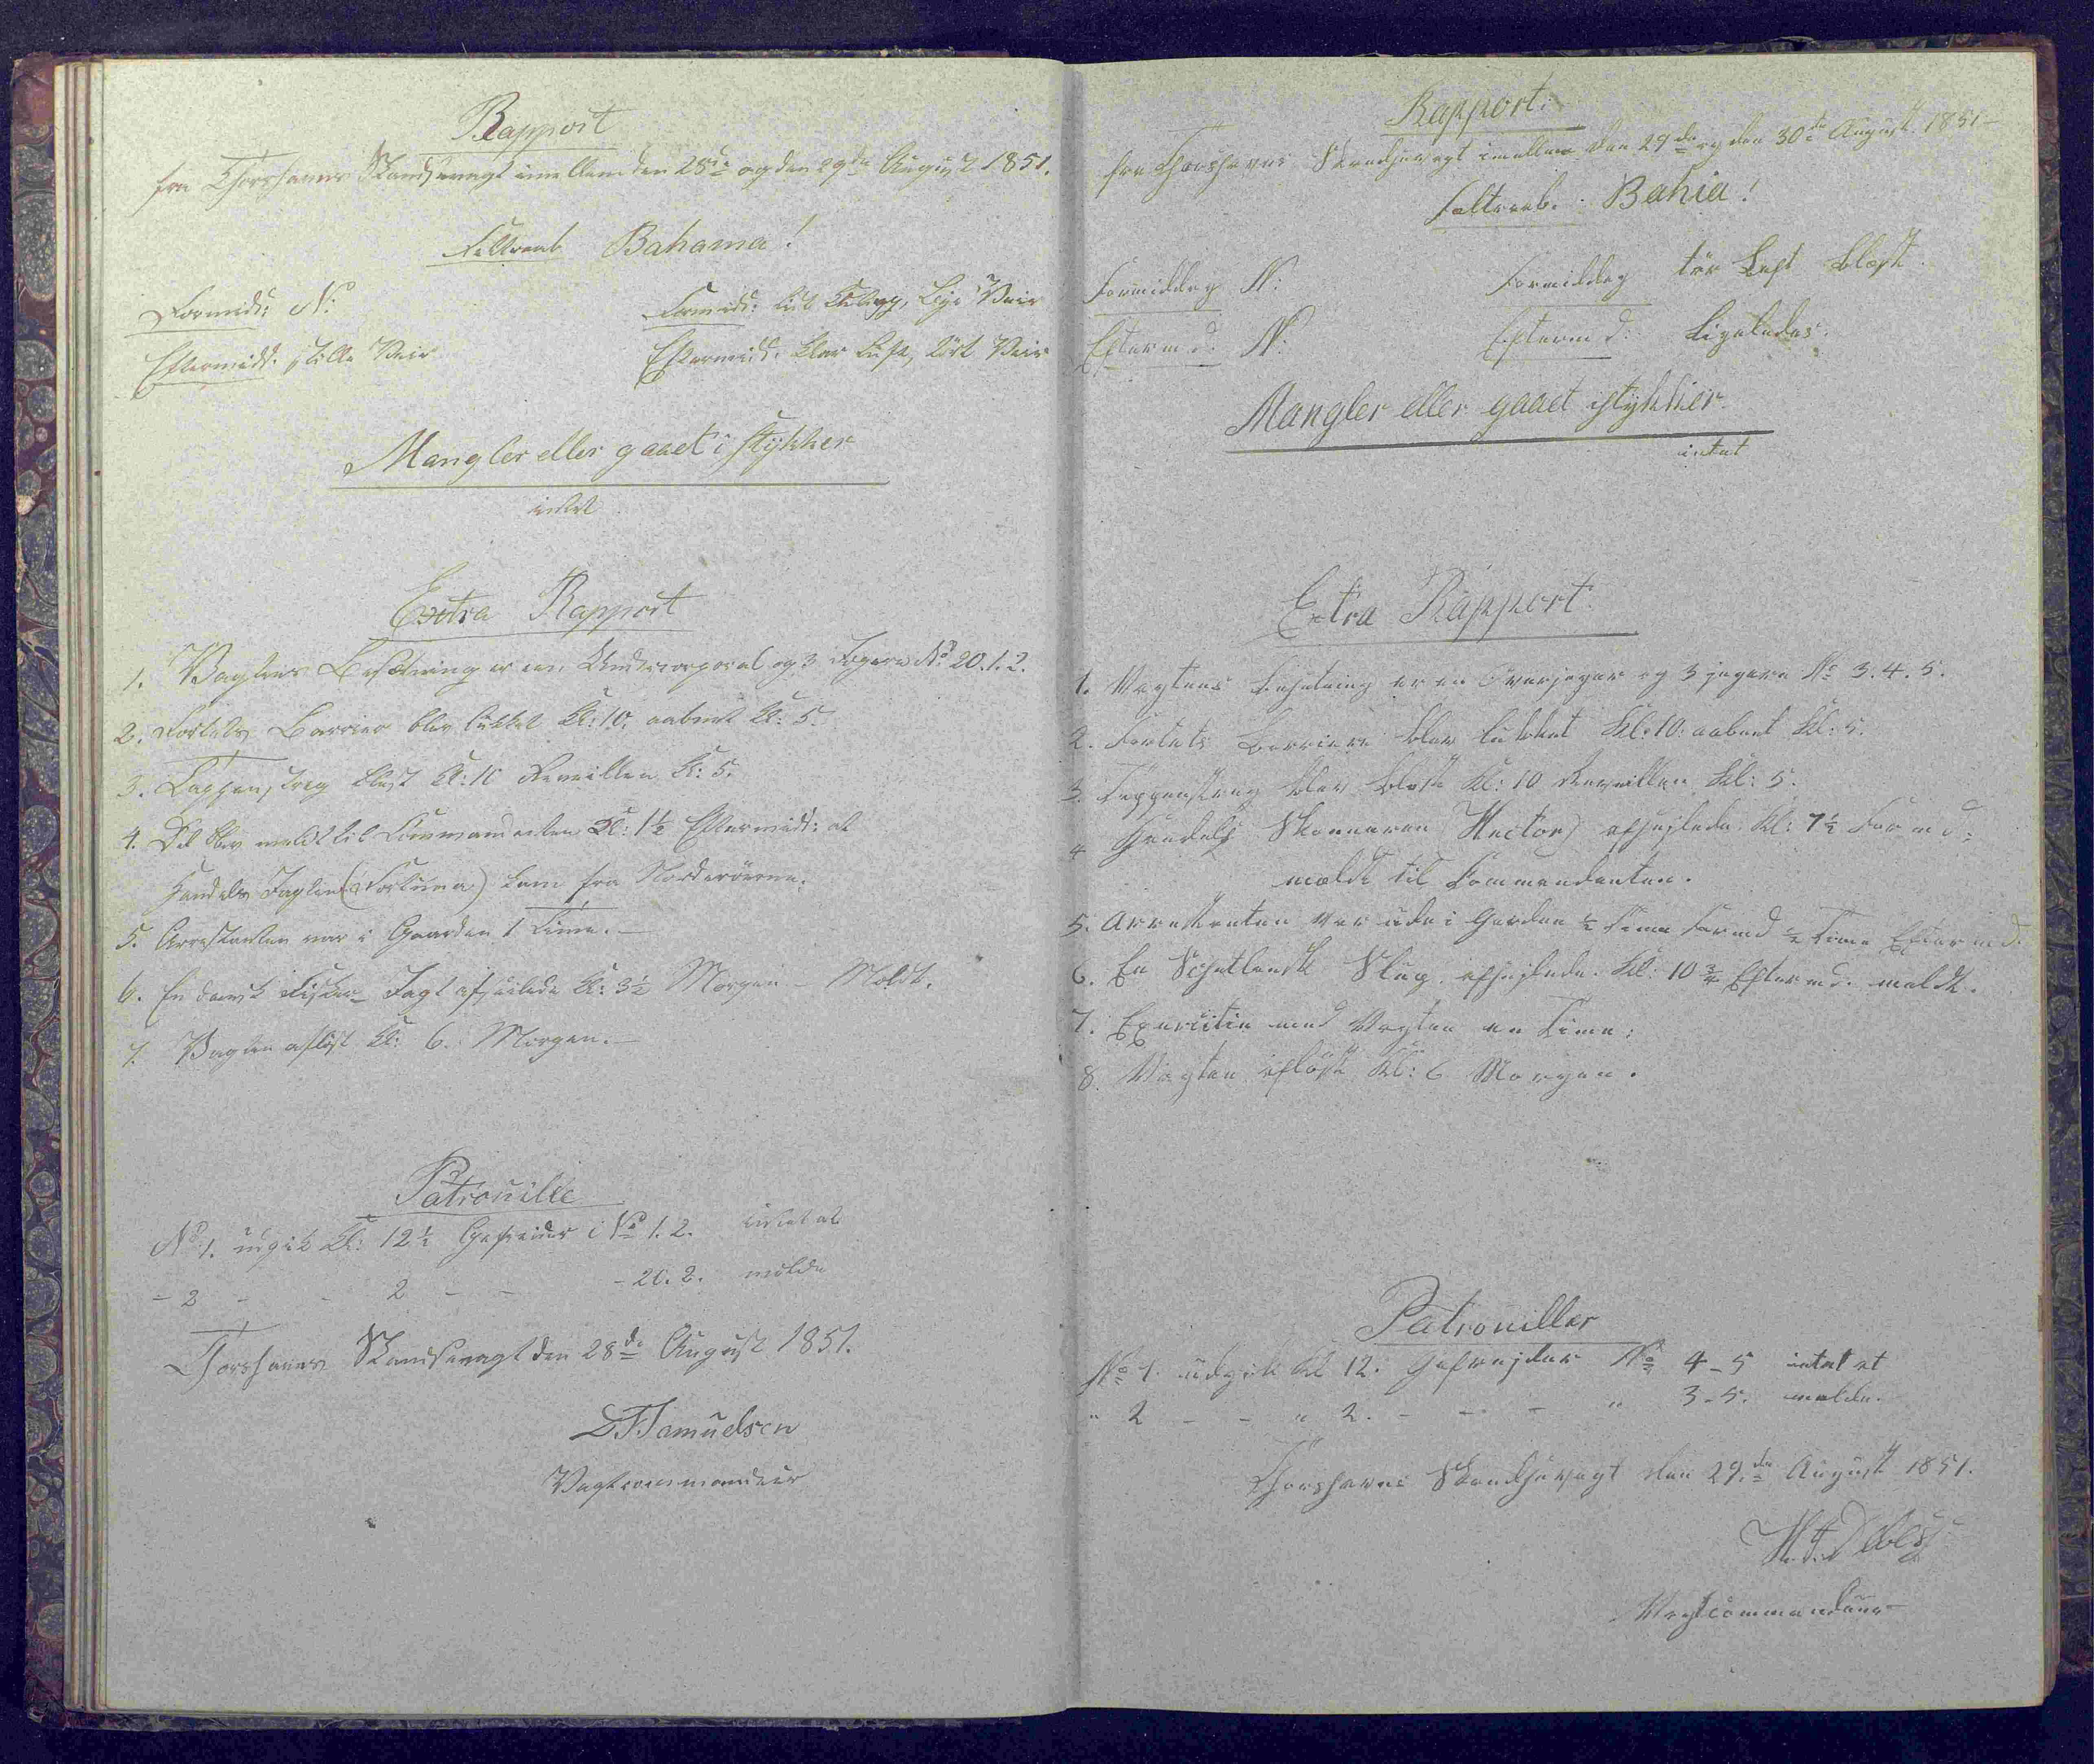 Rapport
fra Thorshavns Skandsevagt imellem den 28de og den 29de August 1851.
Feltraab Bahama!
Formidd: N:
Formidd: lidt Skyg, Bye Veir
Eftermidd. stille Veir
Eftermidd. klar Luft, tört Veir
Mangler eller gaaet i stykker
intet
Extra Rapport
1. Vagtens Besætning er een Undercorporal og 3 Jægere No 20.1.2.
2. Fortets Barriere blev lukket Kl: 10. aabnet Kl: 5.
3. Tappenstreg blæst Kl: 10 Reveillen Kl: 5.
4. Det blev meldt til Commandanten Kl: 1½ Eftermidd: at
Handels Jagten (Fortuna) kom fra Norderöerne.
5. Arrestanten var i Gaarden 1 Time. -
6. En dansk Fisker-Jagt afseilede Kl: 3½ Morgen - Meldt.
7. Vagten aflöst Kl: 6. Morgen. -
Patrouille
No 1. udgik Kl: 12½ Gefreider No 1.2. intet at
- 2 - - 2 - - - 20.2. melde
Thorshavns Skandsevagt den 28de August 1851.
Samuelsen
Vagtcommandeur
Rapport:
fra Thorshavns Skandsevagt imellem den 29de og den 30te August 1851 -
Feltraab. Bahia!
Formiddag N:
Formiddag tör Luft blæst.
Efterm d: N:
Efterm d: Ligeledes.
Mangler eller gaaet istykker.
intet
Extra Rapport.
1. Vagtens besetning er en Overjæger og 3 jegere No 3.4.5.
2. Fortets Barriere blev lukket Kl: 10: aabnet Kl: 5.
3. Tappenstreg blev blæst Kl: 10 Reveillen Kl: 5.
4 Handels Skonnaren (Hector) afsejlede Kl: 7½ Form d:
meldt til Commandanten.
5. Arrestanten var ude i Garden ½ Time Formd ½ Time Efterm d.
6. En Schetlandsk Slup afsejlede Kl: 10¾ Efterm d. meldt.
7. Exercitie med Vagten en Time:
8. Vagten aflöst Kl: 6 Morgen.
Patrouiller
No 1. udgik Kl 12. Gefrejder No 4-5 intet at
" 2 - - " 2. - - - " 3-5. melde.
Thorshavns Skandsevagt den 29de August 1851.
Debes
Vagtcommandeur